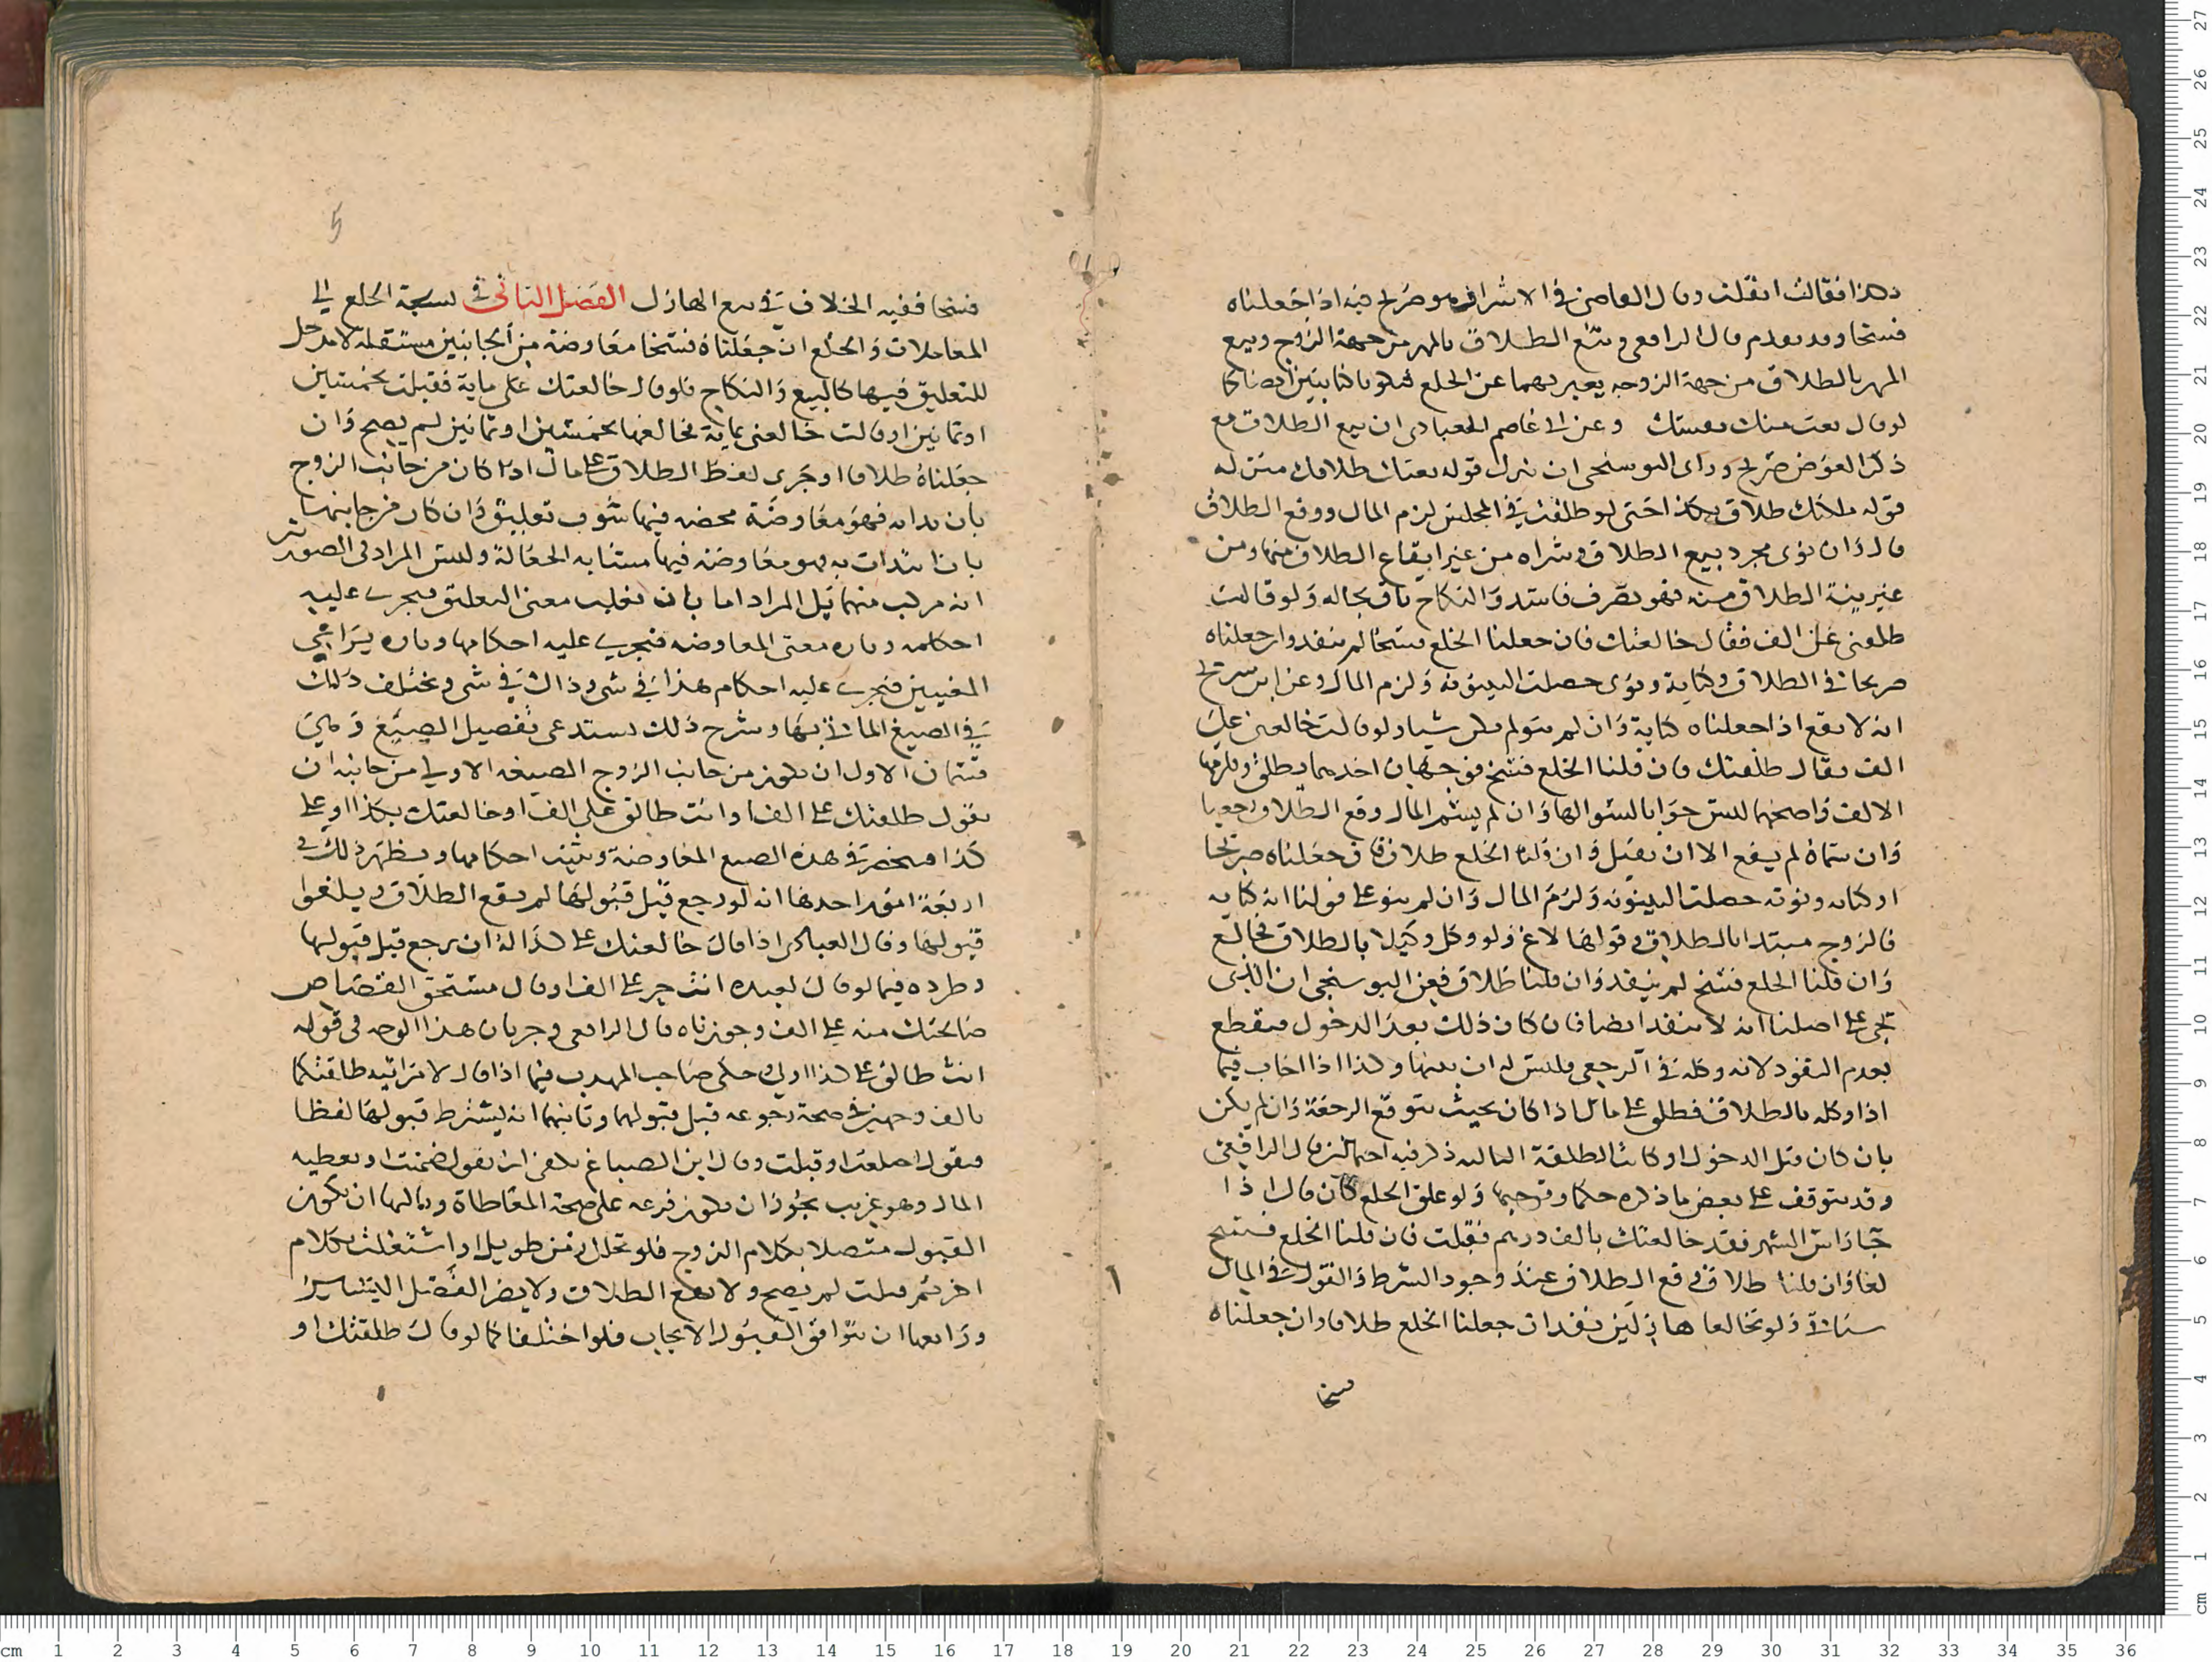 بهذا فقالت اقلت وقال القاضى فى الاشراف هو صريح فيه اذا جعلناه
فسخا وقد تقدم قال الرافعى وبيع الطلاق بالمهر من جهة الزوج وبيع
المهر بالطلاق من جهة الزوجه يعبر بهما عن الخلع فيكونا كنايتين ايضا كما
لو قال بعت منك نفسك وعن ابى عاصم العبادى ان بيع الطلاق مع
ذكر العوض صريح وراى البوسنجى ان ينزل قوله بعتك طلاقك منزله
قوله ملكتك طلاقك بكذا حتى لو طلقت فى المجلس لزم المال ووقع الطلاق
قال وان نوى مجرد بيع الطلاق وشراه من غير ايقاع الطلاق منها ومن
غير نية الطلاق منه فهو تصرف فاسد والنكاح باق بحاله ولو قالت
طلقنى على الف فقال خالعتك فان جعلنا الخلع فسخا لم ينفد وان جعلناه
صريحا فى الطلاق وكناية ونوى حصلت البينونه ولزم المال وعن ابن سريج
انه لا يقع اذا جعلناه كناية وان لم ينو لم يكن شيا ولو قالت خالعنى على
الف فقال طلقتك فان قلنا الخلع فسخ فوجهان احدهما تطلق ويلزمها
الالف واصحهما ليس جوابا لسوالها وان لم يسم المال وقع الطلاق رجعيا
وان سماه لم يقع الا ان تقبل وان قلنا الخلع طلاق فان جعلناه صريحا
او كنايه ونوته حصلت البينونه ولزم المال وان لم ينو على قولنا انه كنايه
فالزوج مبتدا بالطلاق وقولها لاغ ولو وكل وكيلا بالطلاق فخالع
وان قلنا الخلع فسخ لم ينفد وان قلنا طلاق فعن البوسنجى ان الذى
يجى على اصلنا انه لا ينفد ايضا فان كان ذلك بعد الدخول فيقطع
بعدم النفود لانه وكله فى الرجعى فليس له ان يبينها وكذا اذا اجاب فيما
اذا وكله بالطلاق فطلق على مال اذا كان بحيث يتوقع الرجعة وان لم يكن
بان كان قبل الدخول او كانت الطلقة الثالثه ذكر فيه احتمالين قال الرافعى
وقد يتوقف على بعض ما ذكره حكما وتوجيها ولو علق الخلع كان قال اذا
جا راس الشهر فقد خالعتك بالف درهم فقبلت فان قلنا الخلع فسخ
لغا وان قلنا طلاق وقع الطلاق عند وجود الشرط والقول فى المال
سياتى ولو تخالعا هازلين نفد ان جعلنا الخلع طلاقا وان جعلناه
فسخا
فسخا ففيه الخلاف فى بيع الهازل الفصل الثانى فى نسبة الخلع الى
المعاملات والخلع ان جعلناه فسخا معاوضة من الجانبين مستقلة لا مدخل
للتعليق فيها كالبيع والنكاح فلو قال خالعتك على ماية فقبلت بخمسين
او ثمانين او قالت خالعنى بماية فخالعها بخمسين او ثمانين لم يصح وان
جعلناه طلاقا او جرى لفظ الطلاق على مال اذا كان من جانب الزوج
بان بدا به فهو معاوضة محضه فيها شوب تعليق وان كان من جانبها
بان ابتدات به فهو معاوضه فيها مشابه الجعالة وليس المراد فى الصورتين
انه مركب منهما بل المراد اما بان يغلب معنى التعليق فيجرى عليه
احكامه وتاره معنى المعاوضه فيجرى عليه احكامها وتاره يراعى
المعنيين فيجرى عليه احكام هذا فى شى وذاك فى شى ويختلف ذلك
فى الصيغ الماتى بها وشرح ذلك يستدعى تفصيل الصيغ وهى
قسمان الاول ان يكون من جانب الزوج الصيغه الاولى من جانبه ان
يقول طلقتك على الف او انت طالق على الف او خالعتك بكذا او على
كذا فيحضر فى هذه الصيع المعاوضة ويثبت احكامها ويظهر ذلك فى
اربعة امور احدها انه لو رجع قبل قبولها لم يقع الطلاق ويلغوا
قبولها وقال العبادى اذا قال خالعتك على كذا له ان يرجع قبل قبولها
وطرده فيما لو قال لعبده انت حر على الف او قال مستحق القصاص
صالحتك منه على الف وجوزناه قال الرافعى وجريان هذا الوجه فى قوله
انت طالق على كذا اولى وحكى صاحب المهدب فيما اذا قال لامراتيه طلقتكما
بالف وجهين فى صحة رجوعه قبل قبولهما وثانيهما انه يشترط قبولها لفظا
فيقول اختلعت او قبلت وقال ابن الصباغ يكفى ان يقول ضمنت او يعطيه
المال وهو غريب يجوز ان يكون فرعه على صحة المعاطاة وثالثها ان يكون
القبول متصلا بكلام الزوج فلو تخلل زمن طويل او اشتغلت بكلام
اخر ثم قبلت لم يصح ولا يقع الطلاق ولا يضر الفصل اليسير
ورابعها ان يتوافق القبول والايجاب فلو اختلفا كما لو قال طلقتك او